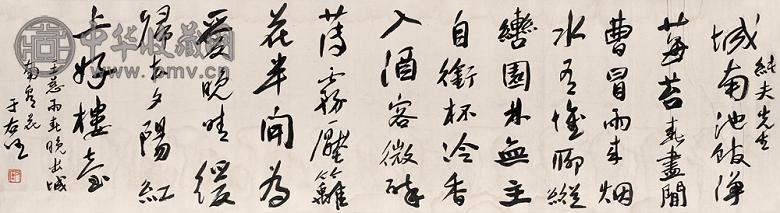 純夫先生
城南池館渾
莓苔春盡閒
曹冒雨來烟
水有懷聊縱
轡園林無主
自銜杯冷香
入酒客微醉
薄霧壓籬
花半開為
愛晚晴緩
歸去夕陽紅
上好樓臺
雨春曉出城
南看花
于右任
中华收藏网
www.pmv.cn